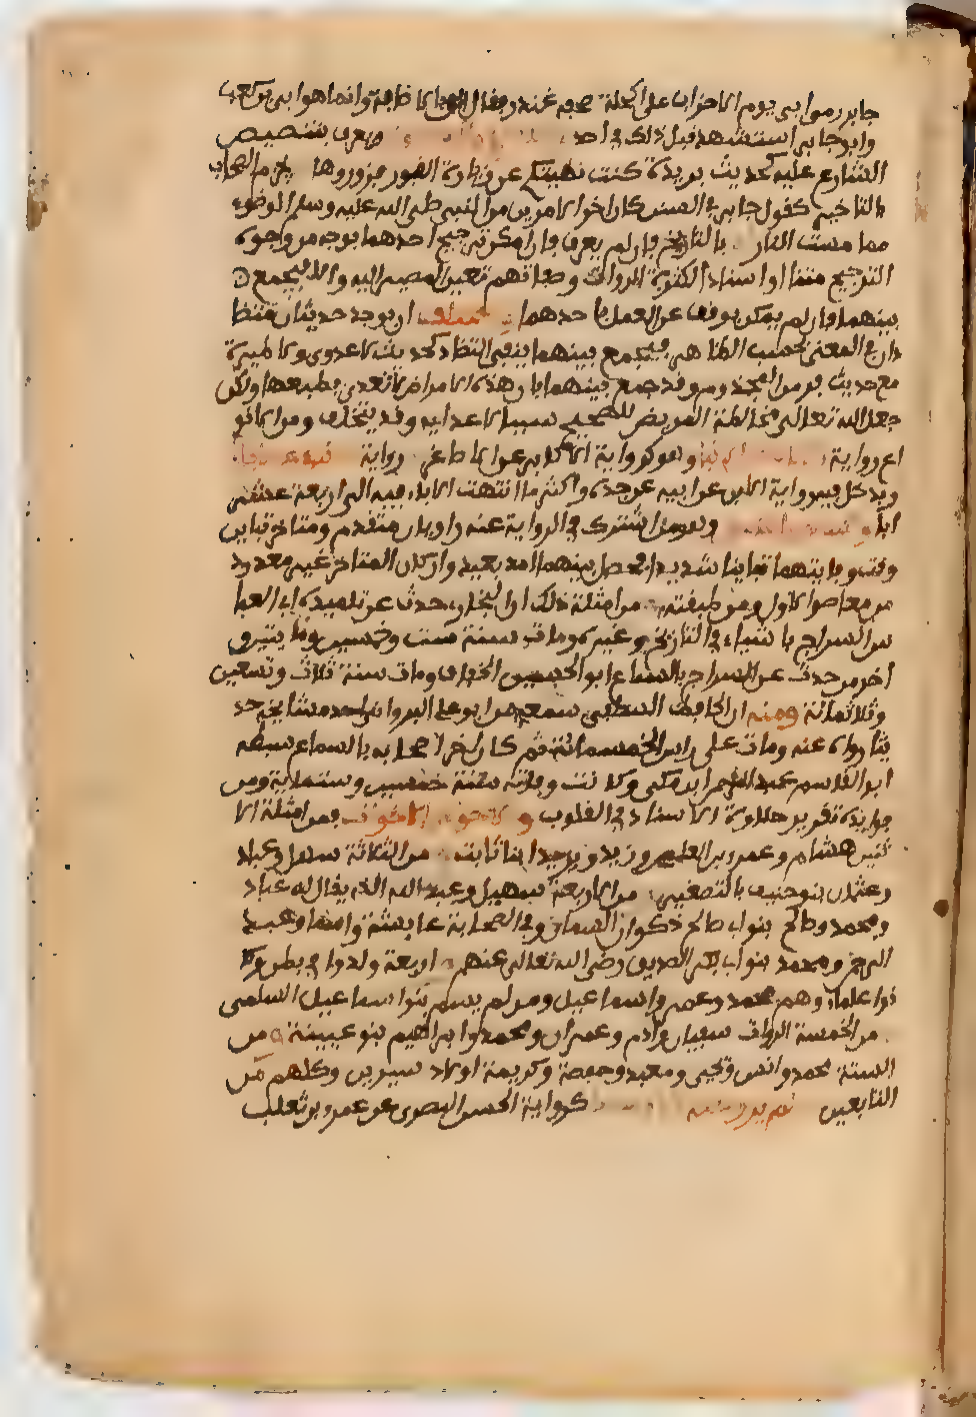 جابر رمى ابى يوم الاحزاب على اكحله صحفه غندر وقال ابى بالاضافة وانما هو ابى بن كعب
وابو جابر استشهد قبل ذلك في احد يعرف بتنصيص
الشارع عليه كحديث بريدة كنت نهيتكم عن زيارة القبور فزوروها بجزم الصحابي
بالتاخير كقول جابر في السنن كان اخر الامرين من النبي صلى الله عليه وسلم الوضوء
مما مست النار بالتاريخ فان لم يعرف فان امكن ترجيح احدهما بوجه من وجوه
الترجيح متنا او اسنادا لكثرة الرواة وصفاتهم تعين المصير اليه والا فيجمع
بينهما فان لم يمكن يوقف عن العمل باحدهما مختلف ان يوجد حديثان متضا
دان في المعنى بحسب الظاهر فيجمع بينهما بنفي التضاد كحديث لا عدوى ولا طيرة
مع حديث فر من المجذوم وقد جمع بينهما بان هذه الامراض لا تعدي بطبعها ولكن
جعل الله تعالى مخالطة المريض للصحيح سببا لاعدايه وقد يتخلف ومن الانو
اع رواية وهو كرواية الاكابر عن الاصاغر رواية
ويدخل فيه رواية الابن عن ابيه عن جده واكثر ما انتهت الاباء فيه الى اربعة عشر
ابا وهو من اشترك في الرواية عنه راويان متقدم ومتاخر تباين
وقت وفاتهما تباينا شديدا فحصل بينهما امد بعيد وان كان المتاخر غير معدود
من معاصر الاول ومن طبقته من امثلة ذلك ان البخاري حدث عن تلميذه ابي العبا
س السراج باشياء في التاريخ وغيره ومات سنة ست وخمسين وما يتين و
اخر من حدث عن السراج بالسماع ابو الحسين الخفاف ومات سنة ثلاث وتسعين
وثلاثمائة ومنه ان الحافظ السلفي سمع منه ابو علي البرداني احد مشايخه حد
يثا رواه عنه ومات على راس الخمسمائة ثم كان اخر اصحابه بالسماع سبطه
ابو القاسم عبد الرحمن ابن مكي وكانت وفاته سنة خمسين وستمائة ومن
فوايده تقرير حلاوة الاسناد في القلوب و الاخوة فمن امثلة الا
ثنين هشام وعمرو ابنا العاص وزيد ويزيد ابنا ثابت من الثلاثة سهل وعباد
وعثمان بنو حنيف بالتصغير من الاربعة سهيل وعبد الله الذي يقال له عباد
ومحمد وصالح بنو ابي صالح ذكوان السمان وفي الصحابة عايشة واسما وعبد
الرحمن ومحمد بنو ابي بكر الصديق رضي الله تعالى عنهم اربعة ولدوا في بطن وكا
نوا علماء وهم محمد وعمر واسماعيل ومن لم يسم بنو اسماعيل السلمي
من الخمسة الرواة سفيان وادم وعمران ومحمد وابراهيم بنو عيينة ومن
الستة محمد وانس ويحيى ومعبد وحفصة وكريمة اولاد سيرين وكلهم من
التابعين كرواية الحسن البصري عن عمرو بن تغلب